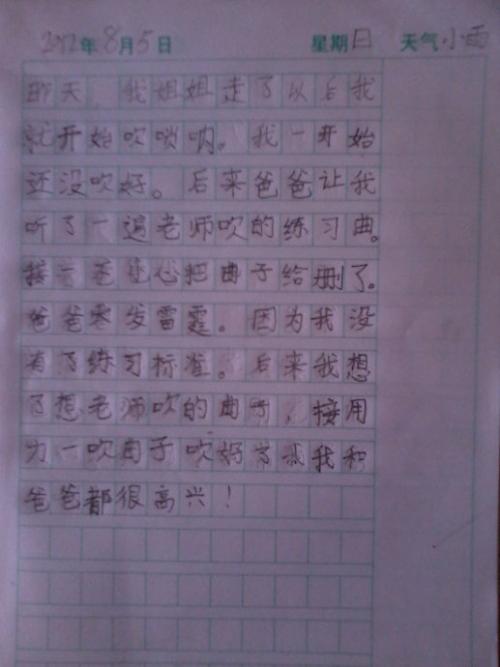 2012年8月5日 星期日 天气小雨
昨天，我姐姐走了以后我
就开始吹唢呐。我一开始
还没吹好。后来爸爸让我
听了一遍老师吹的练习曲。
接一爸 心把曲子给删了。
爸爸 发雷霆。因为我没
有了练习标准。后来我想
了想老师吹的曲子，接用
力一吹曲子吹好 我和
爸爸都很高兴！